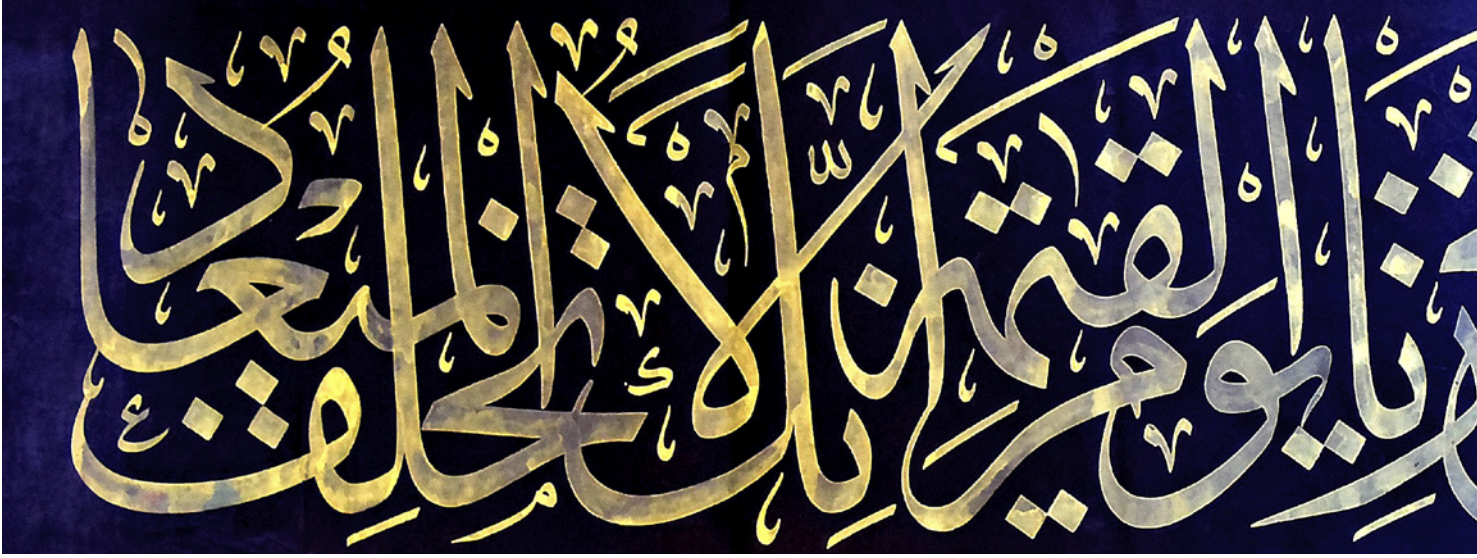 تُخْزِنَا يَوْمَ الْقِيٰمَةِ إِنَّكَ لَا تُخْلِفُ الْمِيعَادَ